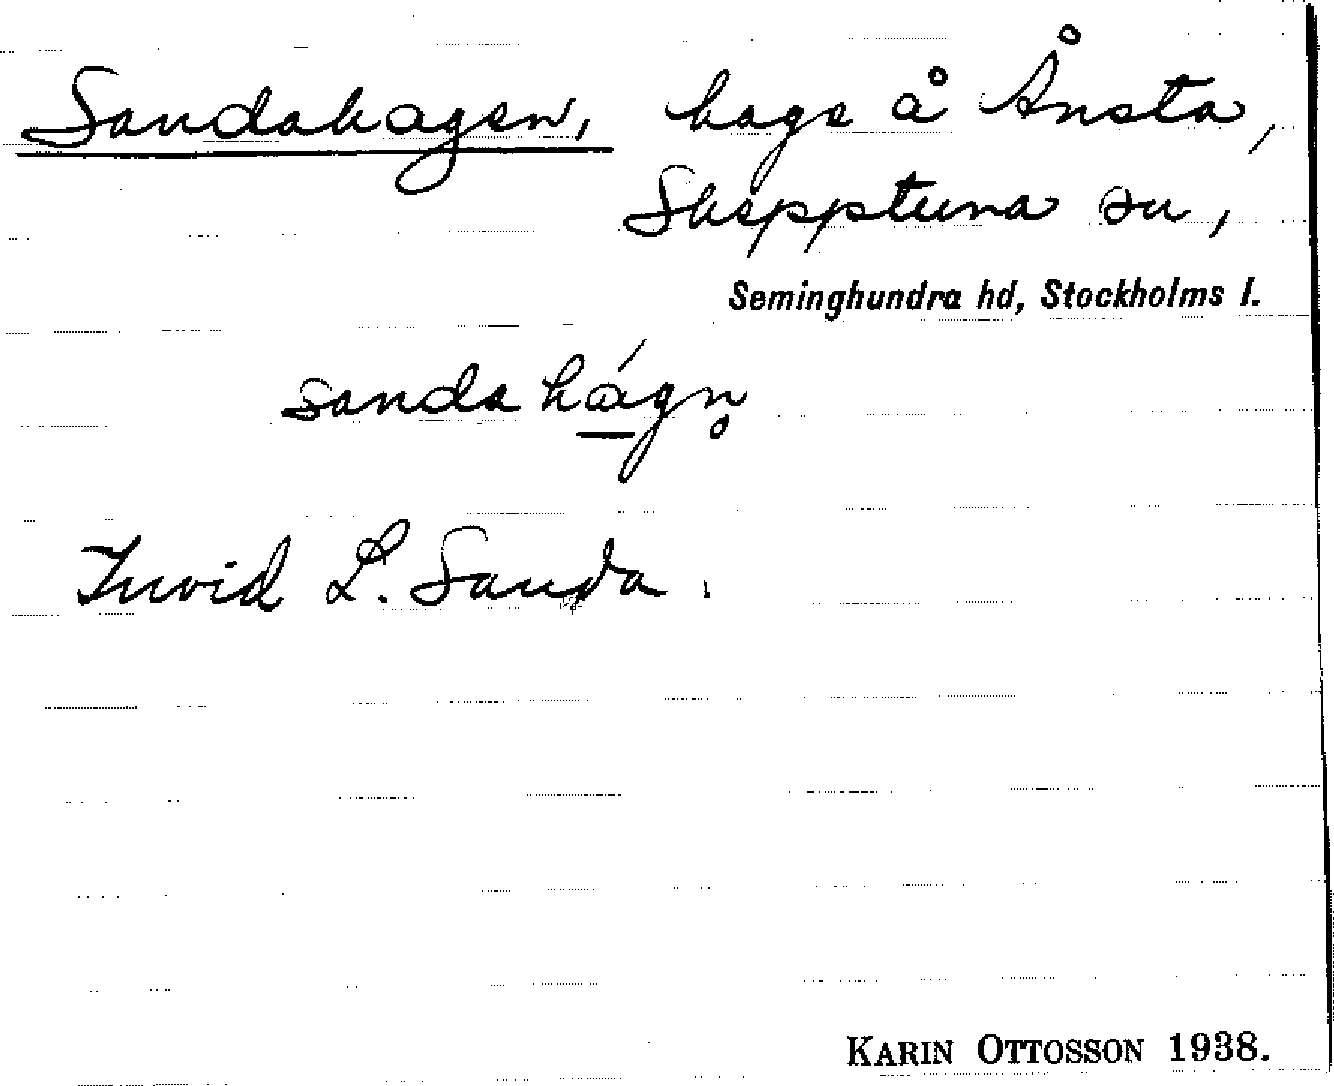 Sandahagen, hage å Ånsta,
Skepptuna sn,
Seminghundra hd, Stockholms l.
sandahágn̥
Invid L. Sanda.
KARIN OTTOSSON 1938.